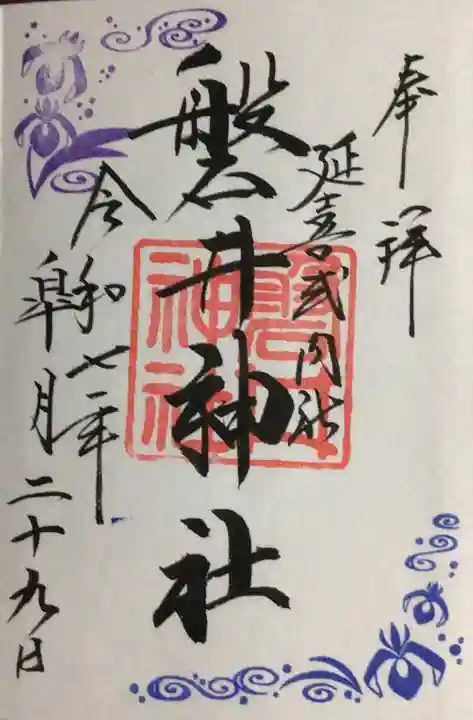 奉拝
延喜式内社
磐井神社
磐井
神社
令和七年
皐月二十九日